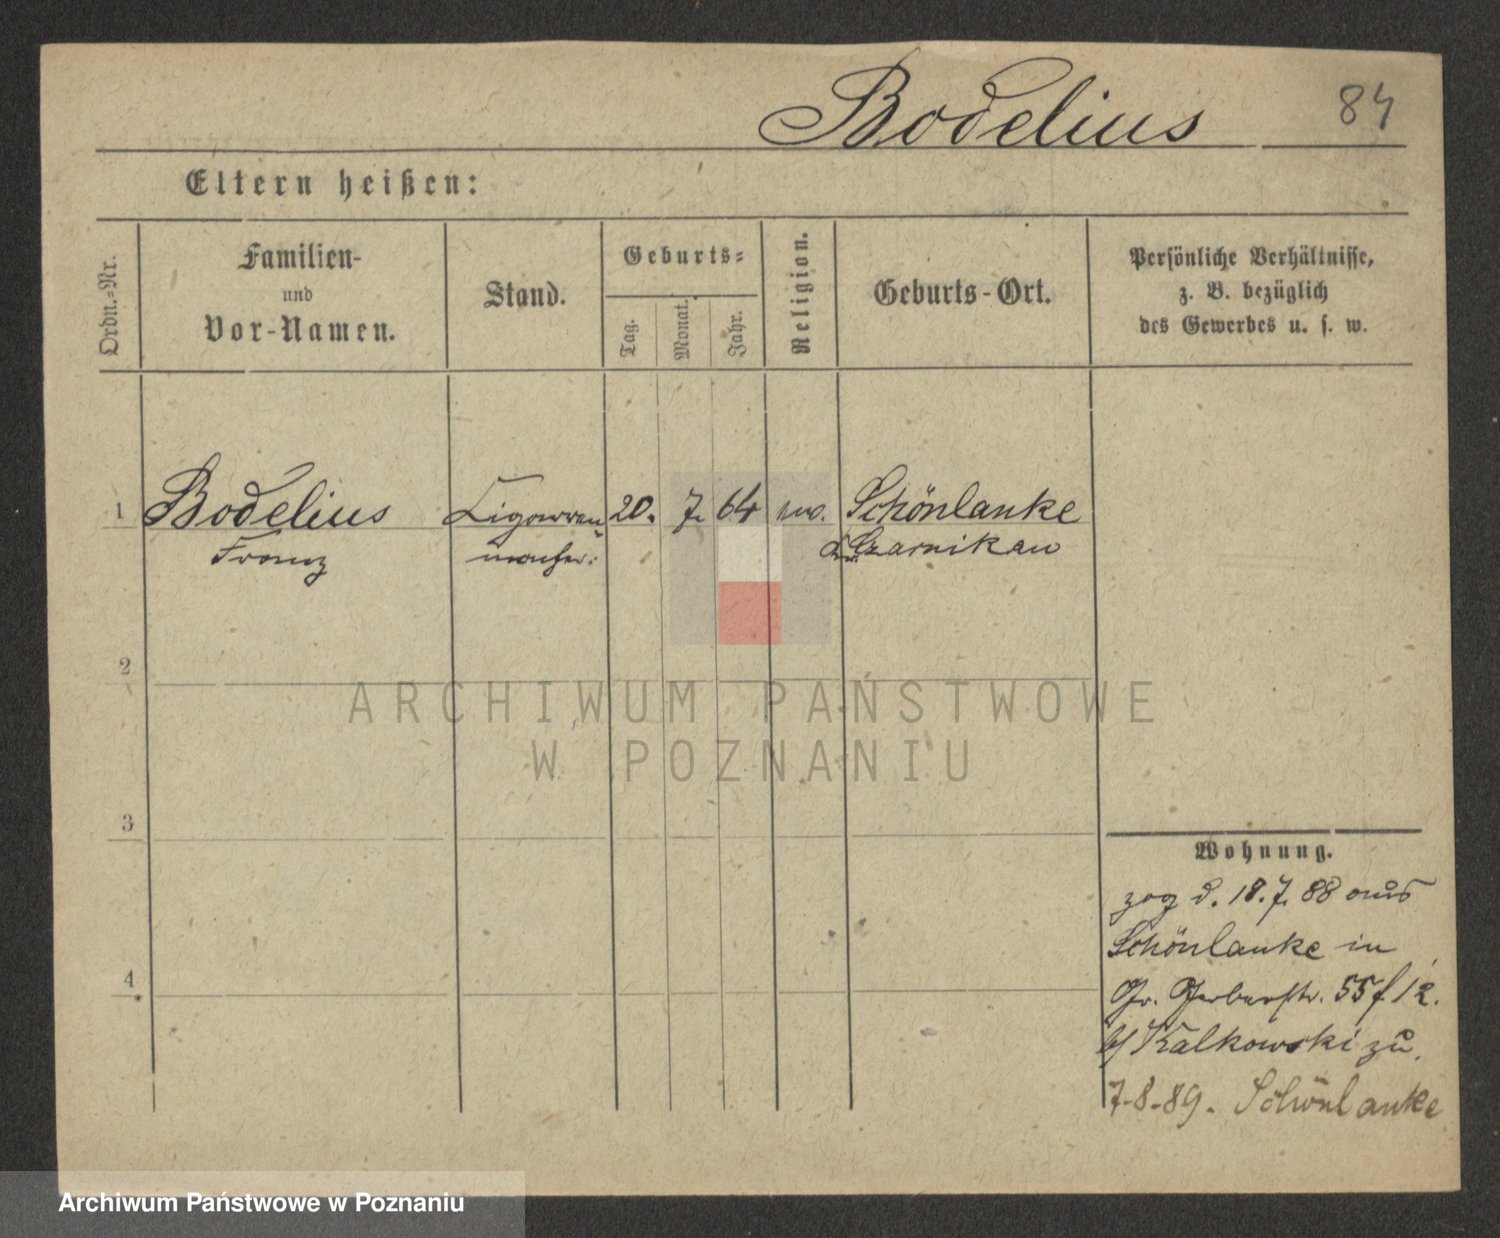 Bodelius 84
Eltern heißen:
Ordn.-Nr.
Familien-
und
Vor-Namen.
Stand.
Geburts-
Tag.
Monat.
Jahr.
Religion.
Geburts-Ort.
Persönliche Verhältnisse,
z. B. bezüglich
des Gewerbes u. s. w.
1 Bodelius Cigarren 20. 7. 64 Schönlanke
Franz macher. Czarnikau
2
3
4
Wohnung.
zog d. 18.7.88 aus
Schönlanke in
Gr. Gerberstr. 55 f 12.
b/ Kalkowski zu.
7-8-89. Schönlanke
ARCHIWUM PAŃSTWOWE
W POZNANIU
Archiwum Państwowe w Poznaniu